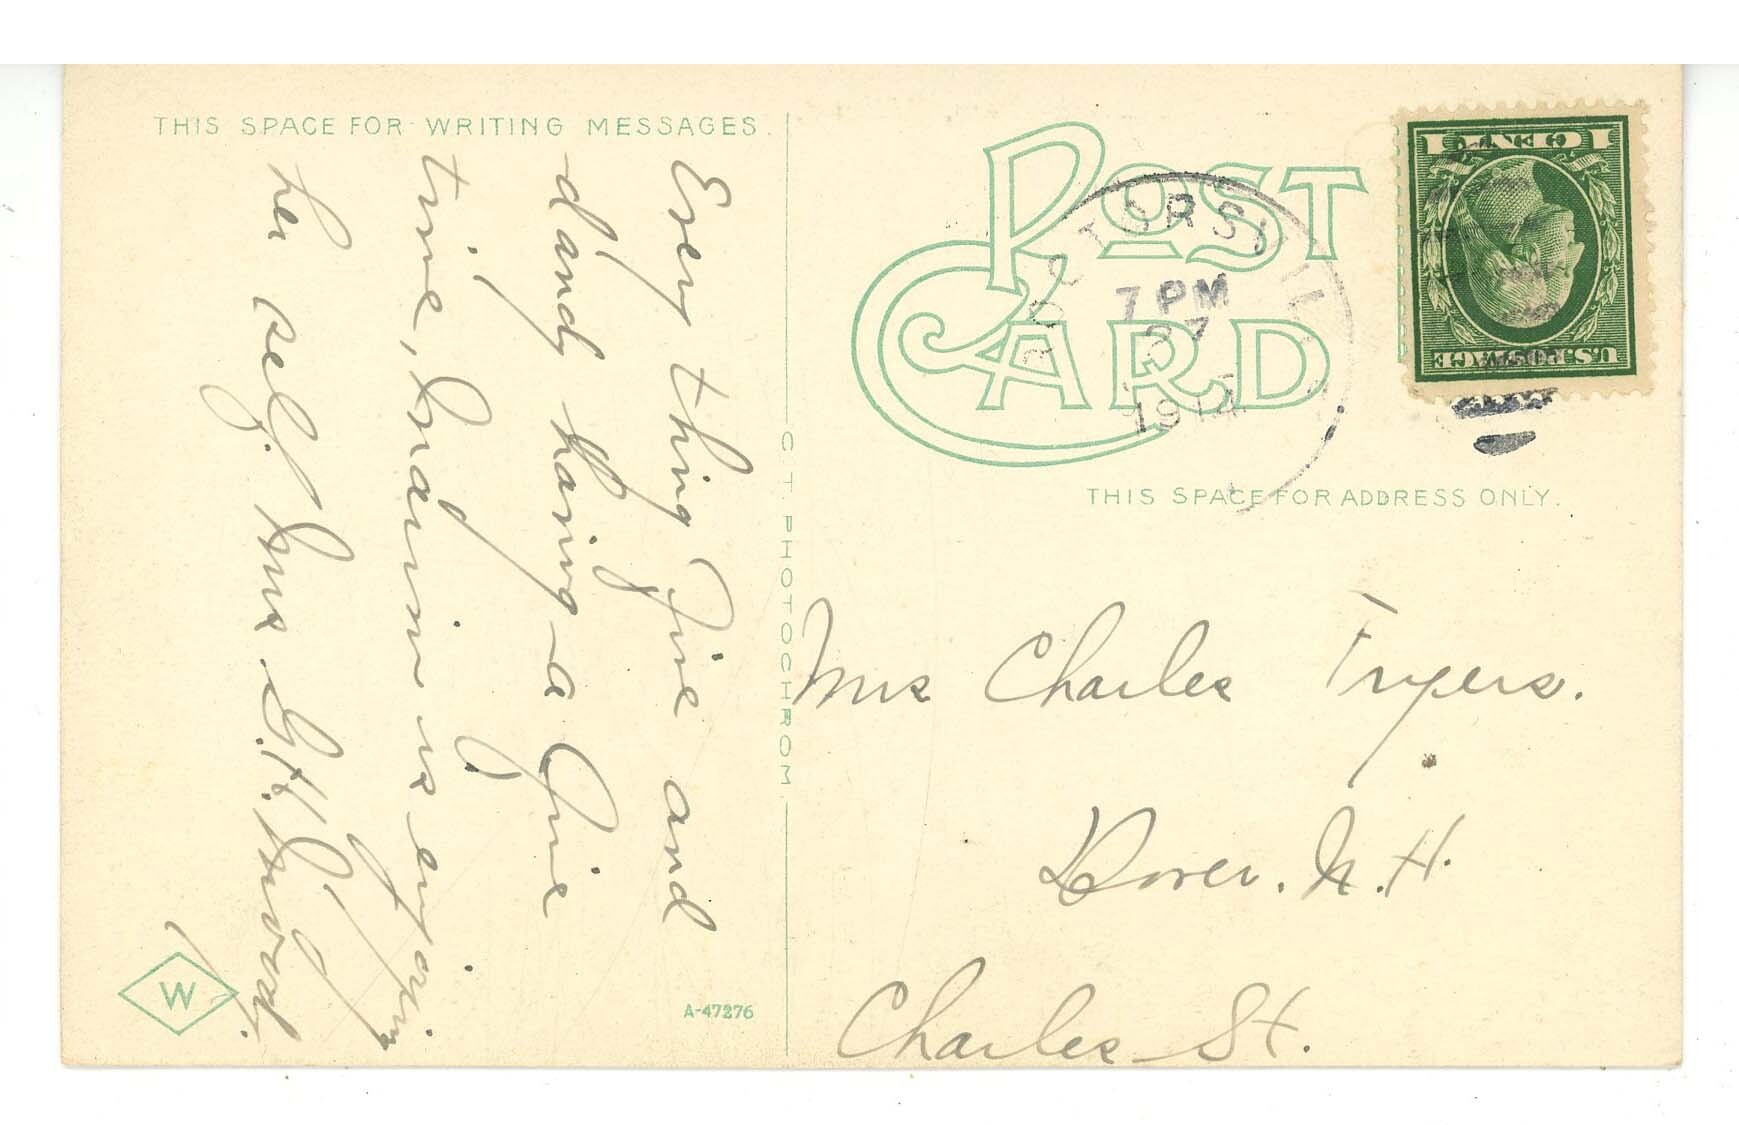 THIS SPACE FOR WRITING MESSAGES.
Every thing Fine and
dandy having a Fine
time, is enjoying
her self. Mrs. G.H.
C.T. PHOTOCHROM
W
A-47276
POST
CARD
7 PM
27
1914
1 CENT 1
U.S. POSTAGE
THIS SPACE FOR ADDRESS ONLY.
Mrs Charles Tryers.
Dover. N.H.
Charles St.